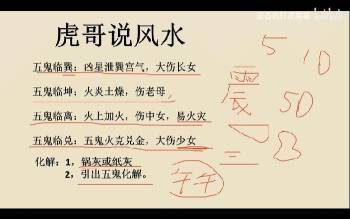 虎哥说风水
五鬼临巽：凶星泄巽宫气，大伤长女
五鬼临坤：火炎土燥，伤老母，
五鬼临离：火上加火，伤中女，易火灾
五鬼临兑：五鬼火克兑金，大伤少女
化解：1，锅灰或纸灰
2，引出五鬼化解。
5 10
震 50
午午